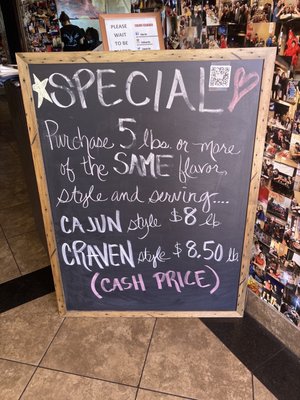 PLEASE
WAIT
TO BE
SPECIAL
Purchase 5 lbs. or more
of the SAME flavor,
style and serving....
CAJUN style $8 lb
CRAVEN style $8.50 lb
(CASH PRICE)